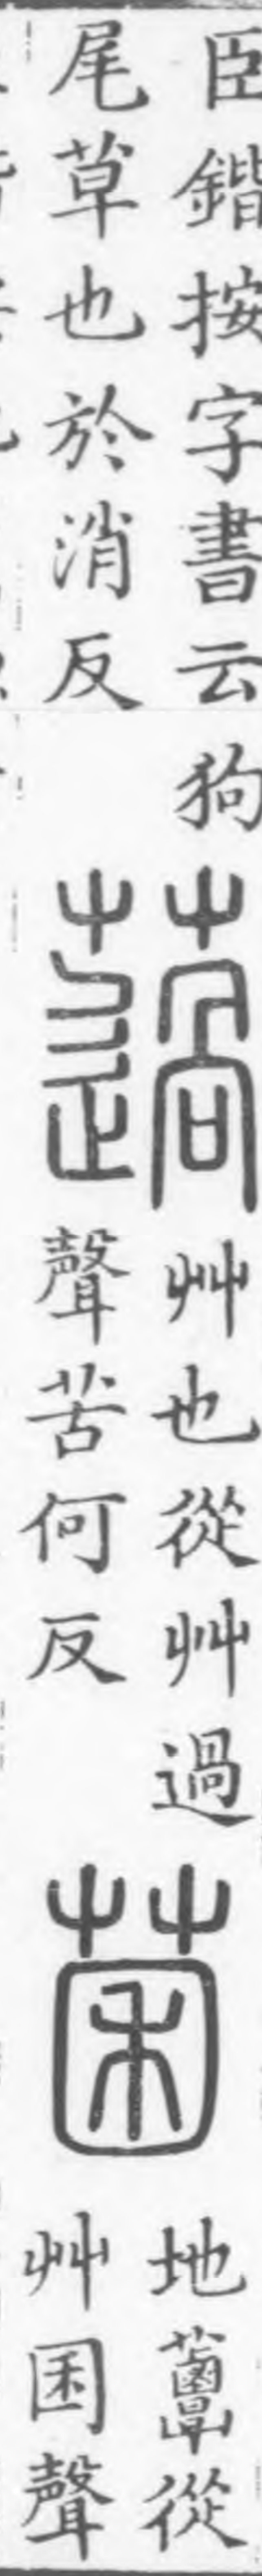 臣鍇按字書云狗
尾草也於消反
薖
艸也從艸過
聲苦何反
菌
地蕈從
艸囷聲